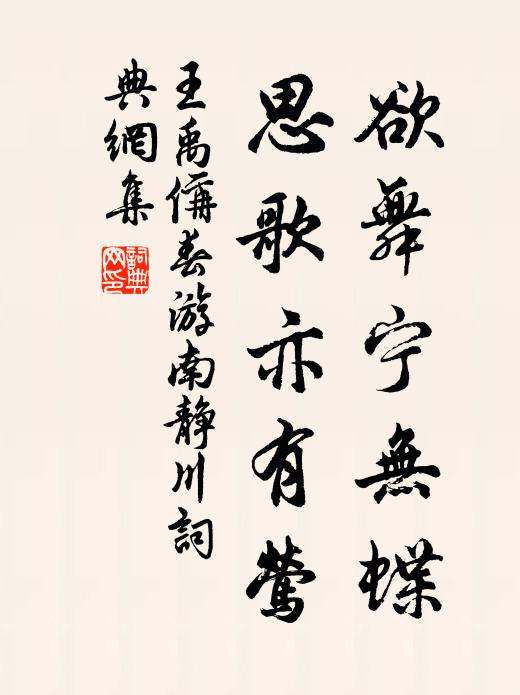 欲舞宁無蝶
思歌亦有莺
王禹偁春游南静川詞
典網集
詞典
网印